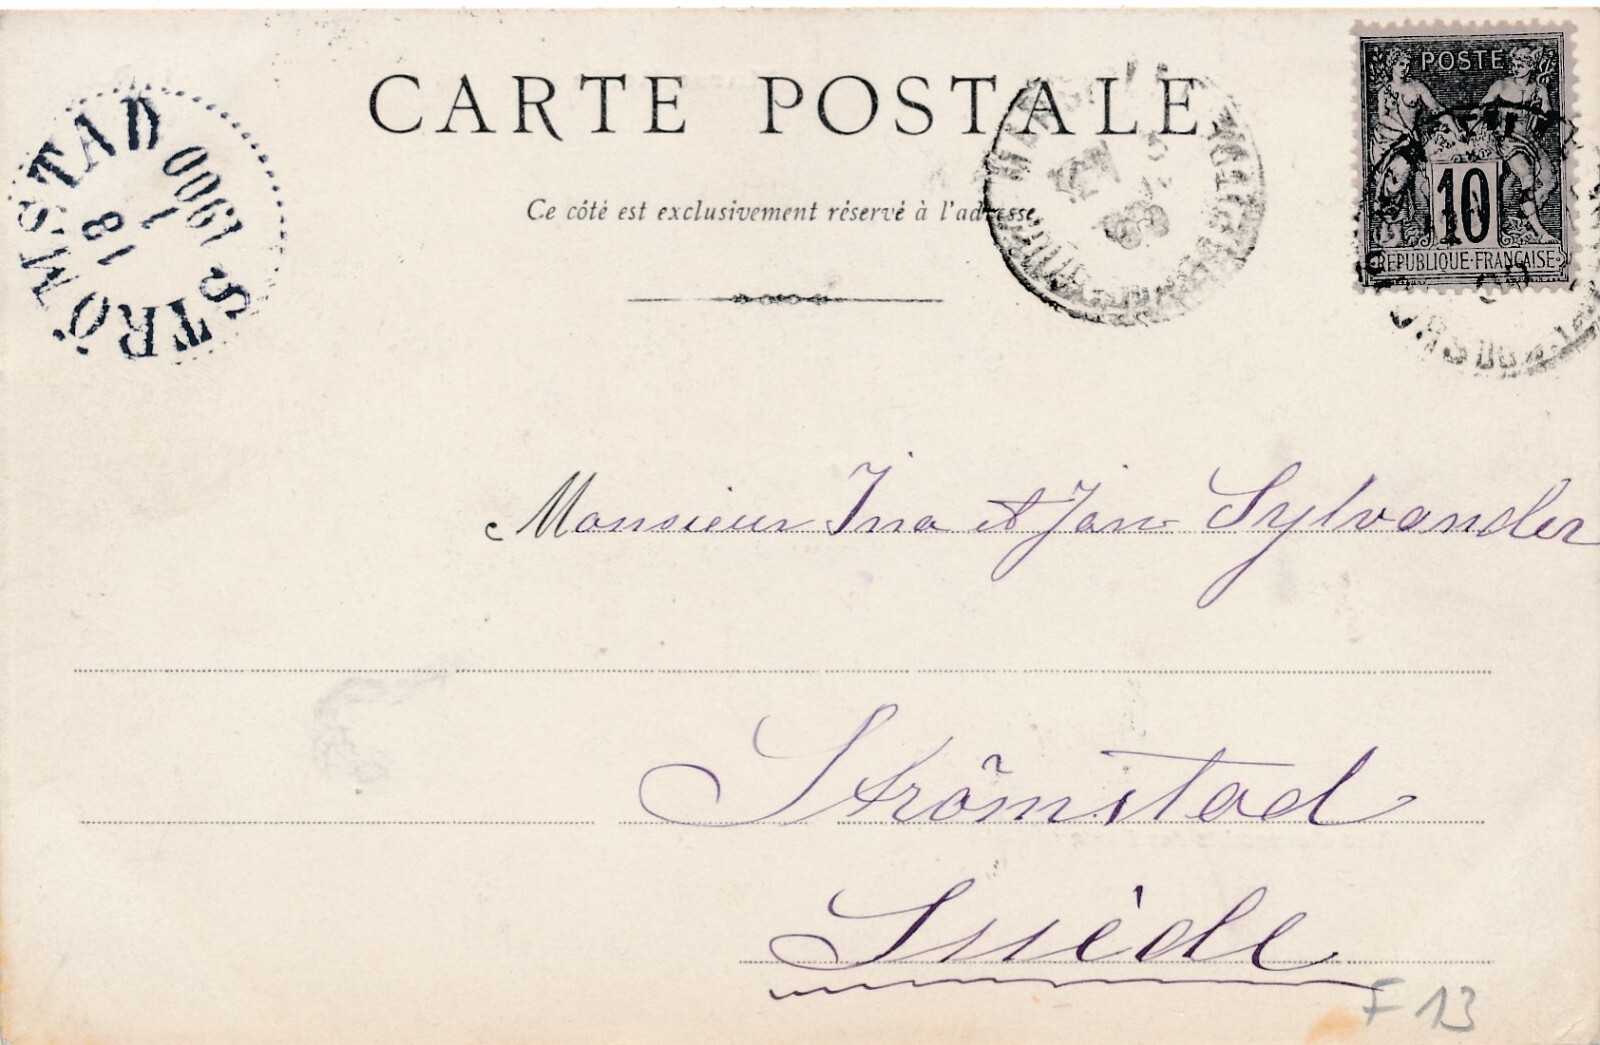 CARTE POSTALE
POSTE
10
REPUBLIQUE·FRANÇAISE
Ce côté est exclusivement réservé à l'adresse
STRÖMSTAD
STRÖMSTAD
18
1
1900
Monsieur Ina et Jan Sylvander
Strömstad
Suède
F 13